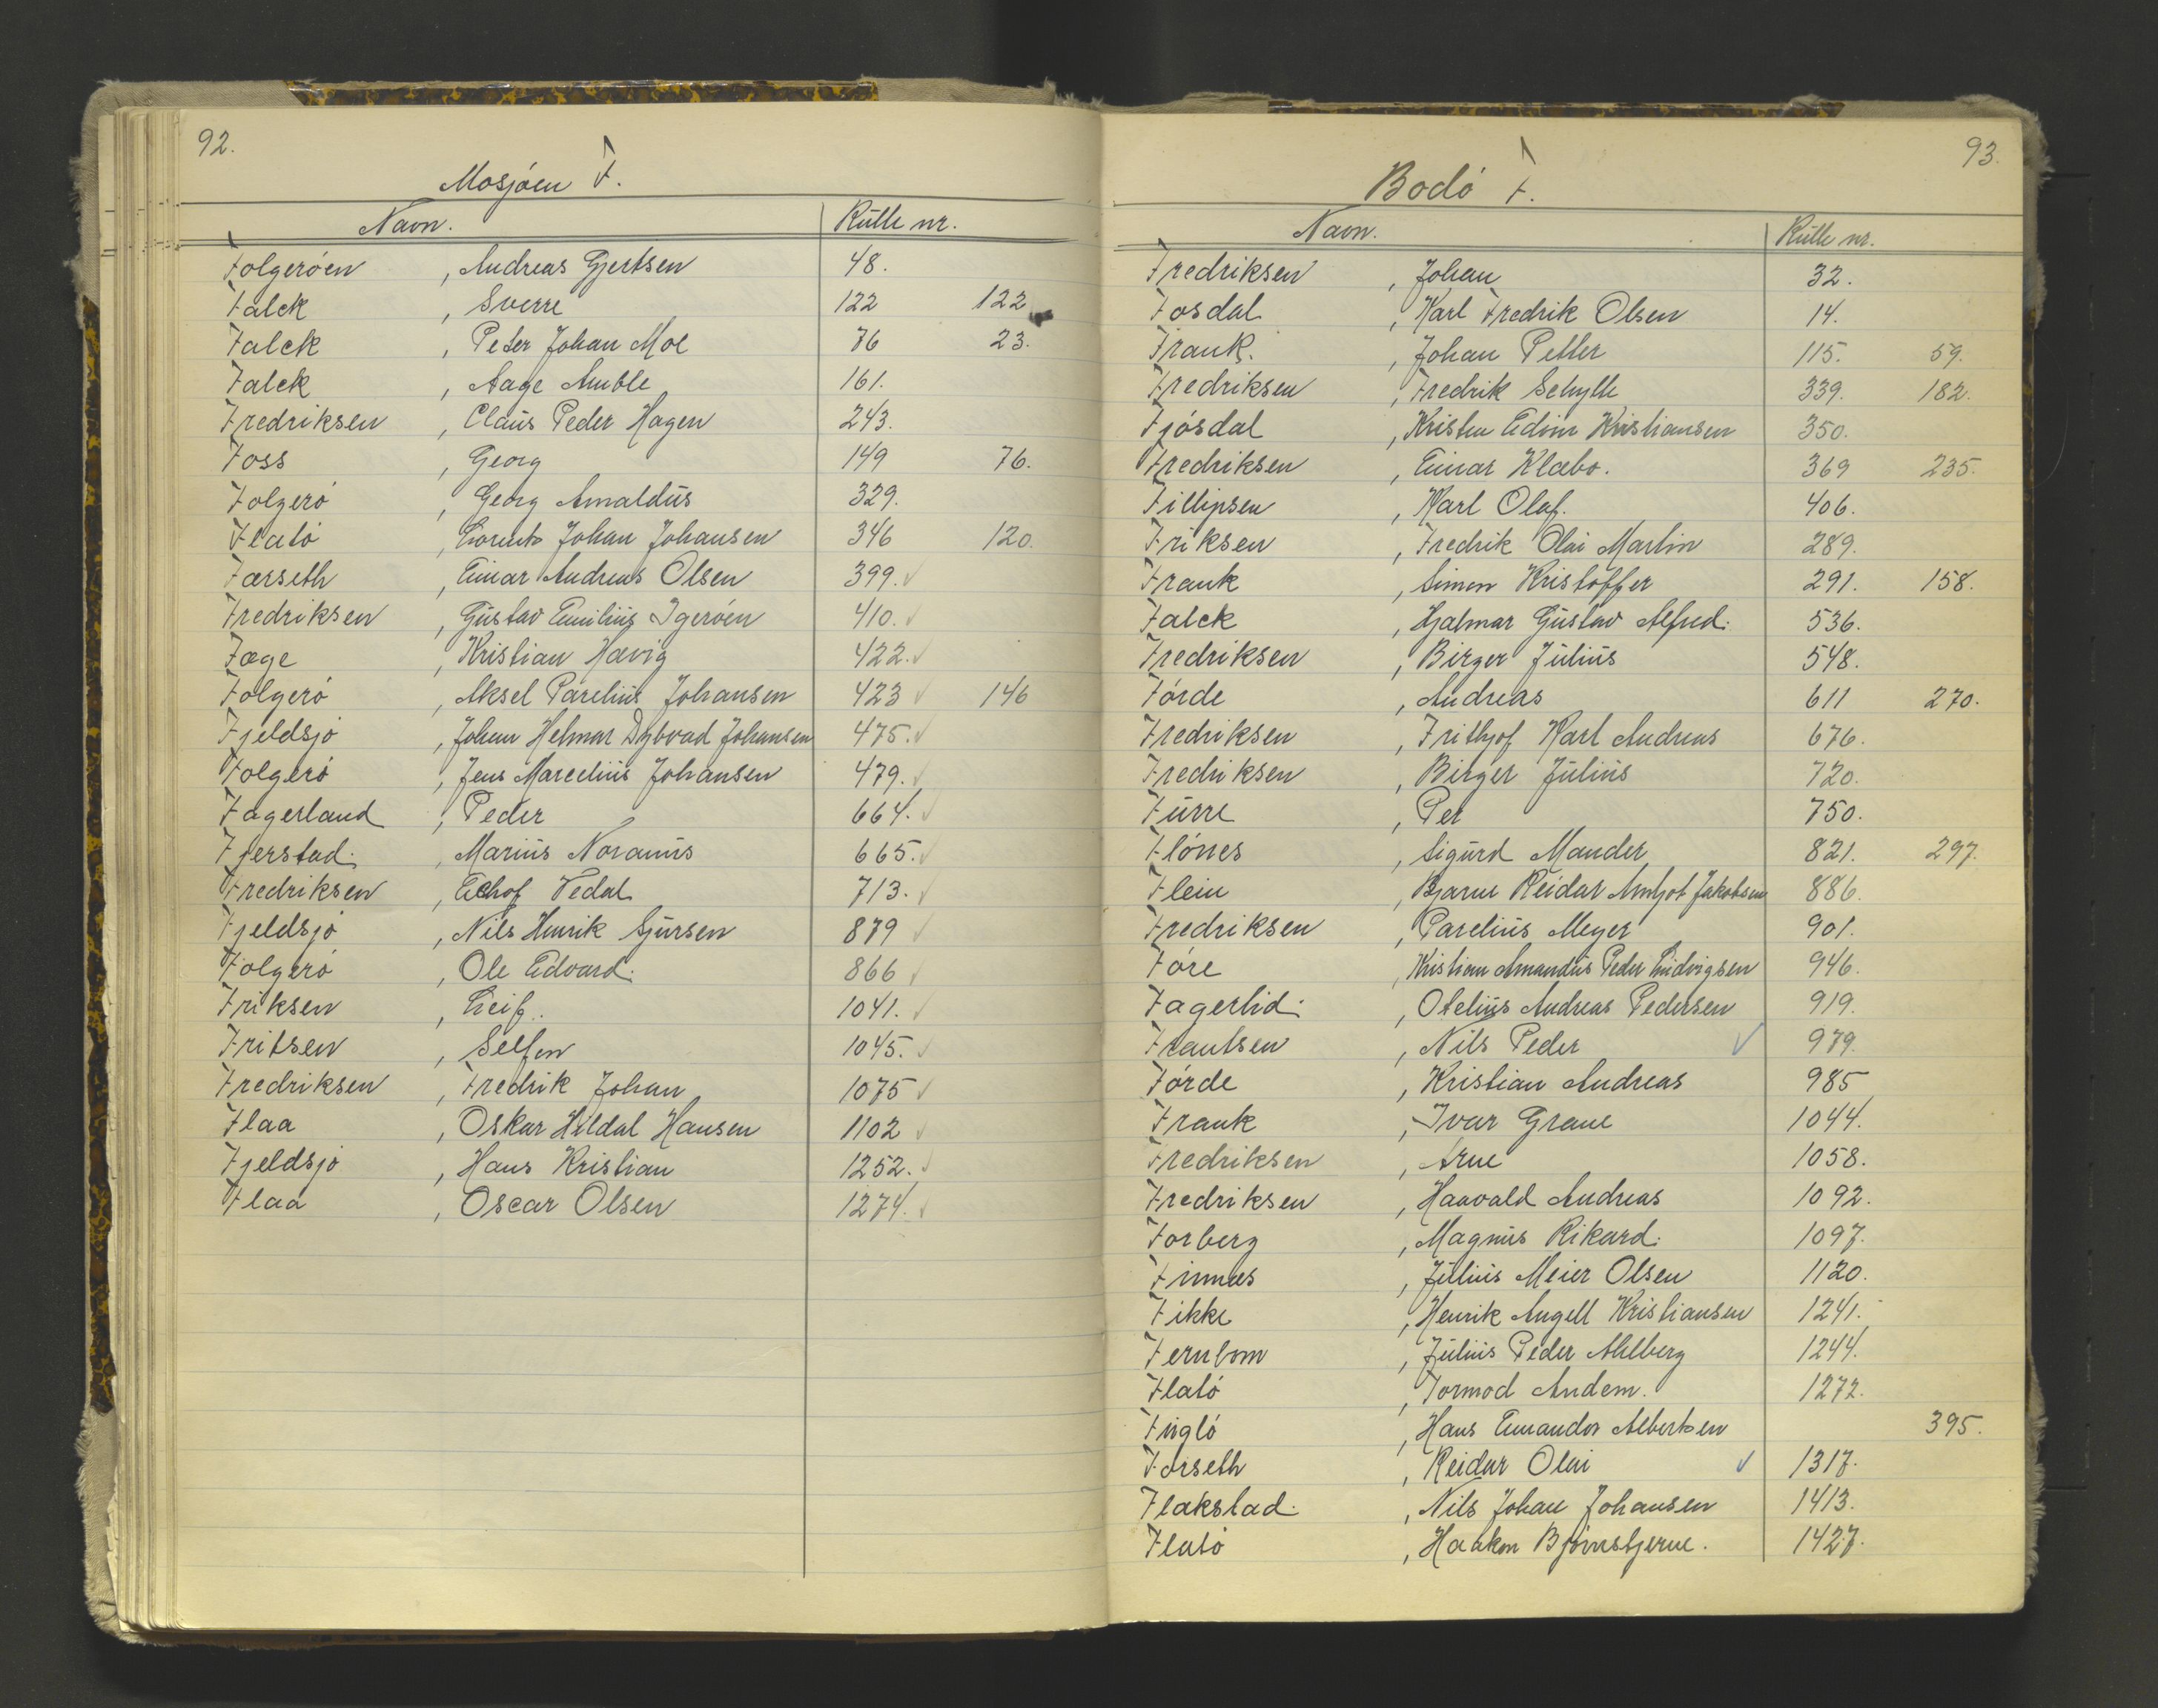 92.
Mosjóen F.
Navn. Rulle nr.
Folgeróen , Andreas Gjertsen 48.
Falck , Sverre 122 122
Falck , Peter Johan Moe 76 23.
Falck , Aage Amble 161.
Fredriksen , Claus Peder Hagen 243.
Foss , Georg 149 76.
Folgeró , Georg Arnaldus 329.
Flató , Lorents Johan Johansen 346 120.
Forseth , Einar Andreas Olsen 399. ✓
Fredriksen , Gustav Emilius Igeróen 410. ✓
Fæge , Kristian Hævig 422. ✓
Folgeró , Aksel Parelius Johansen 423 ✓ 146
Fjeldsjó , Johan Helmar Dybvad Johansen 475. ✓
Folgeró , Jens Marcelius Johansen 479. ✓
Fagerland , Peder 664. ✓
Fjerstad. , Marius Noranus 665. ✓
Fredriksen , Vedal 713. ✓
Fjeldsjó , Nils Henrik Sjursen 879 ✓
Folgeró , Ole Edvard. 866 ✓
Friksen , Leif. 1041. ✓
Fritsen , 1045. ✓
Fredriksen , Fredrik Johan 1075 ✓
Flaa , Oskar Hildal Hansen 1102 ✓
Fjeldsjó , Hans Kristian 1252. ✓
Flaa , Oscar Olsen 1274. ✓
93.
Bodó F.
Navn. Rulle nr.
Fredriksen , Johan 32.
Fosdal , Karl Fredrik Olsen 14.
Frank. , Johan Petter 115. 59.
Fredriksen , Fredrik Schytte 339. 182.
Fjósdal , Kristen Edvin Kristiansen 350.
Fredriksen , Einar Klæbo. 369 235.
Fillipsen , Karl Olaf. 406.
Friksen , Fredrik Olai Martin 289.
Frank , Simon Kristoffer 291. 158.
Falck , Hjalmar Gustav Alfred. 536.
Fredriksen , Birger Julius 548.
Fórde , Andreas 611 270.
Fredriksen , Frithjof Karl Andreas 676.
Fredriksen , Birger Julius 720.
Furre , Per 750.
Flónes , Sigurd Mander 821. 297.
Flein , Bjarne Reidar Arnljot Jakobsen 886.
Fredriksen , Parelius Meyer 901.
Fóre , Kristian Amandus Peder Ludvigsen 946.
Fagerlid. , Otelius Andreas Pedersen 919.
Frantsen , Nils Peder ✓ 979.
Fórde , Kristian Andreas 985
Frank , Ivar Grane 1044.
Fredriksen , Arne 1058.
Fredriksen , Haavald Andreas 1092.
Forberg , Magnus Rikard. 1097.
Finnæs , Julius Meier Olsen 1120.
Fikke , Henrik Angell Kristiansen 1241.
Fernbom , Julius Peder Ahlberg 1244.
Flató , Tormod Andem. 1272.
Fugló , Hans Emandor Albertsen 395.
Forseth , Reidar Olai ✓ 1317.
Flakstad. , Nils Johan Johansen 1413.
Flató , Haakon Bjórnstjerne. 1427.